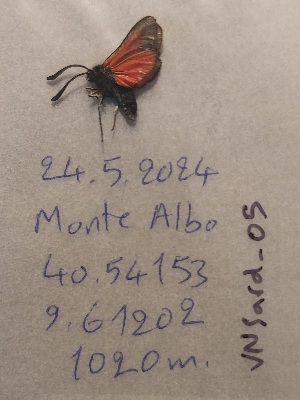 24.5.2024
Monte Albo
40.54153
9.61202
1020m.
VNSard_05